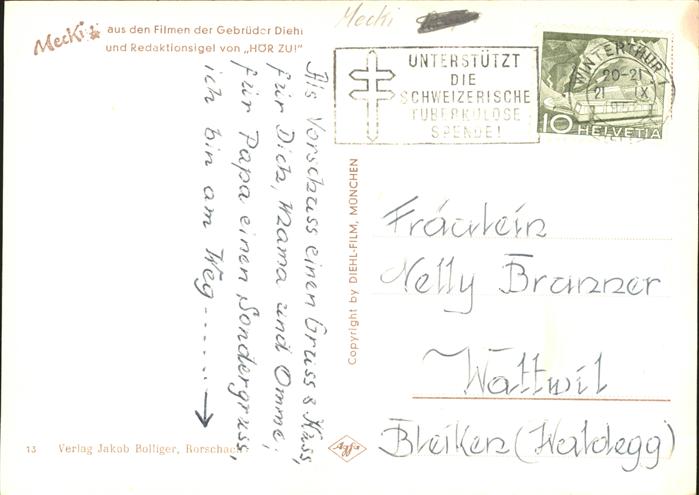 Mecki
Mecki aus den Filmen der Gebrüder Diehl
und Redaktionsigel von „HÖR ZU!"
UNTERSTÜTZT
DIE
SCHWEIZERISCHE
TUBERKULOSE
SPENDE!
WINTERTHUR 1
20-21
21 IX
10 HELVETIA
Als Vorschuss einen Gruss & Kuss,
für Dich, Mama und Omme,
für Papa einen Sondergruss,
ich bin am Weg
Copyright by DIEHL-FILM, MÜNCHEN
Fräulein
Nelly Brunner
Wattwil
Bleiken (Waldegg)
Agfa
13 Verlag Jakob Bolliger, Rorschach